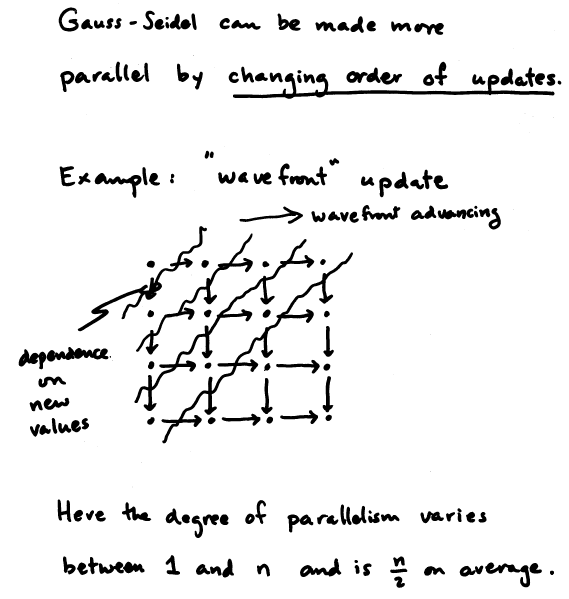 Gauss-Seidel can be made more
parallel by changing order of updates.
Example: "wavefront" update
wavefront advancing
dependence
on
new
values
Here the degree of parallelism varies
between 1 and n and is n/2 on average.